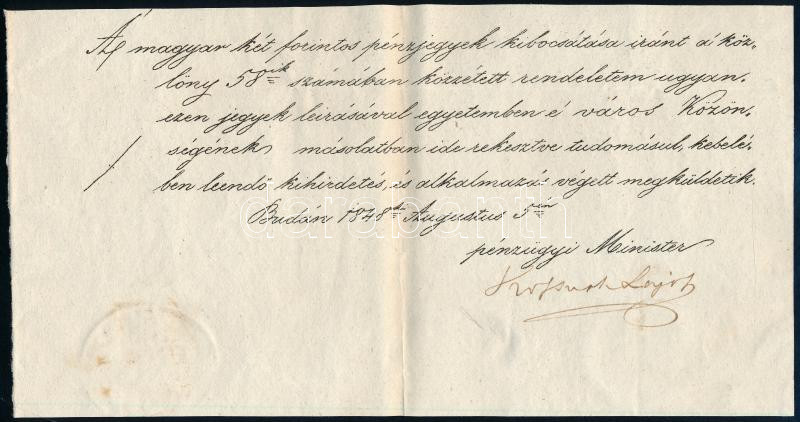 A' magyar két forintos pénzjegyek kibocsátása iránt a' köz-
löny 58ik számában közzétett rendeletem ugyan-
ezen jegyek leirásával egyetemben é város Közön-
ségének másolatban ide rekesztve tudomásul, kebelé-
ben leendő kihirdetés, és alkalmazás végett megküldetik.
Budán 1848k Augustus 5én
pénzügyi Minister
Kossuth Lajos